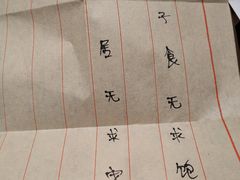 子食无求饱
居无求安